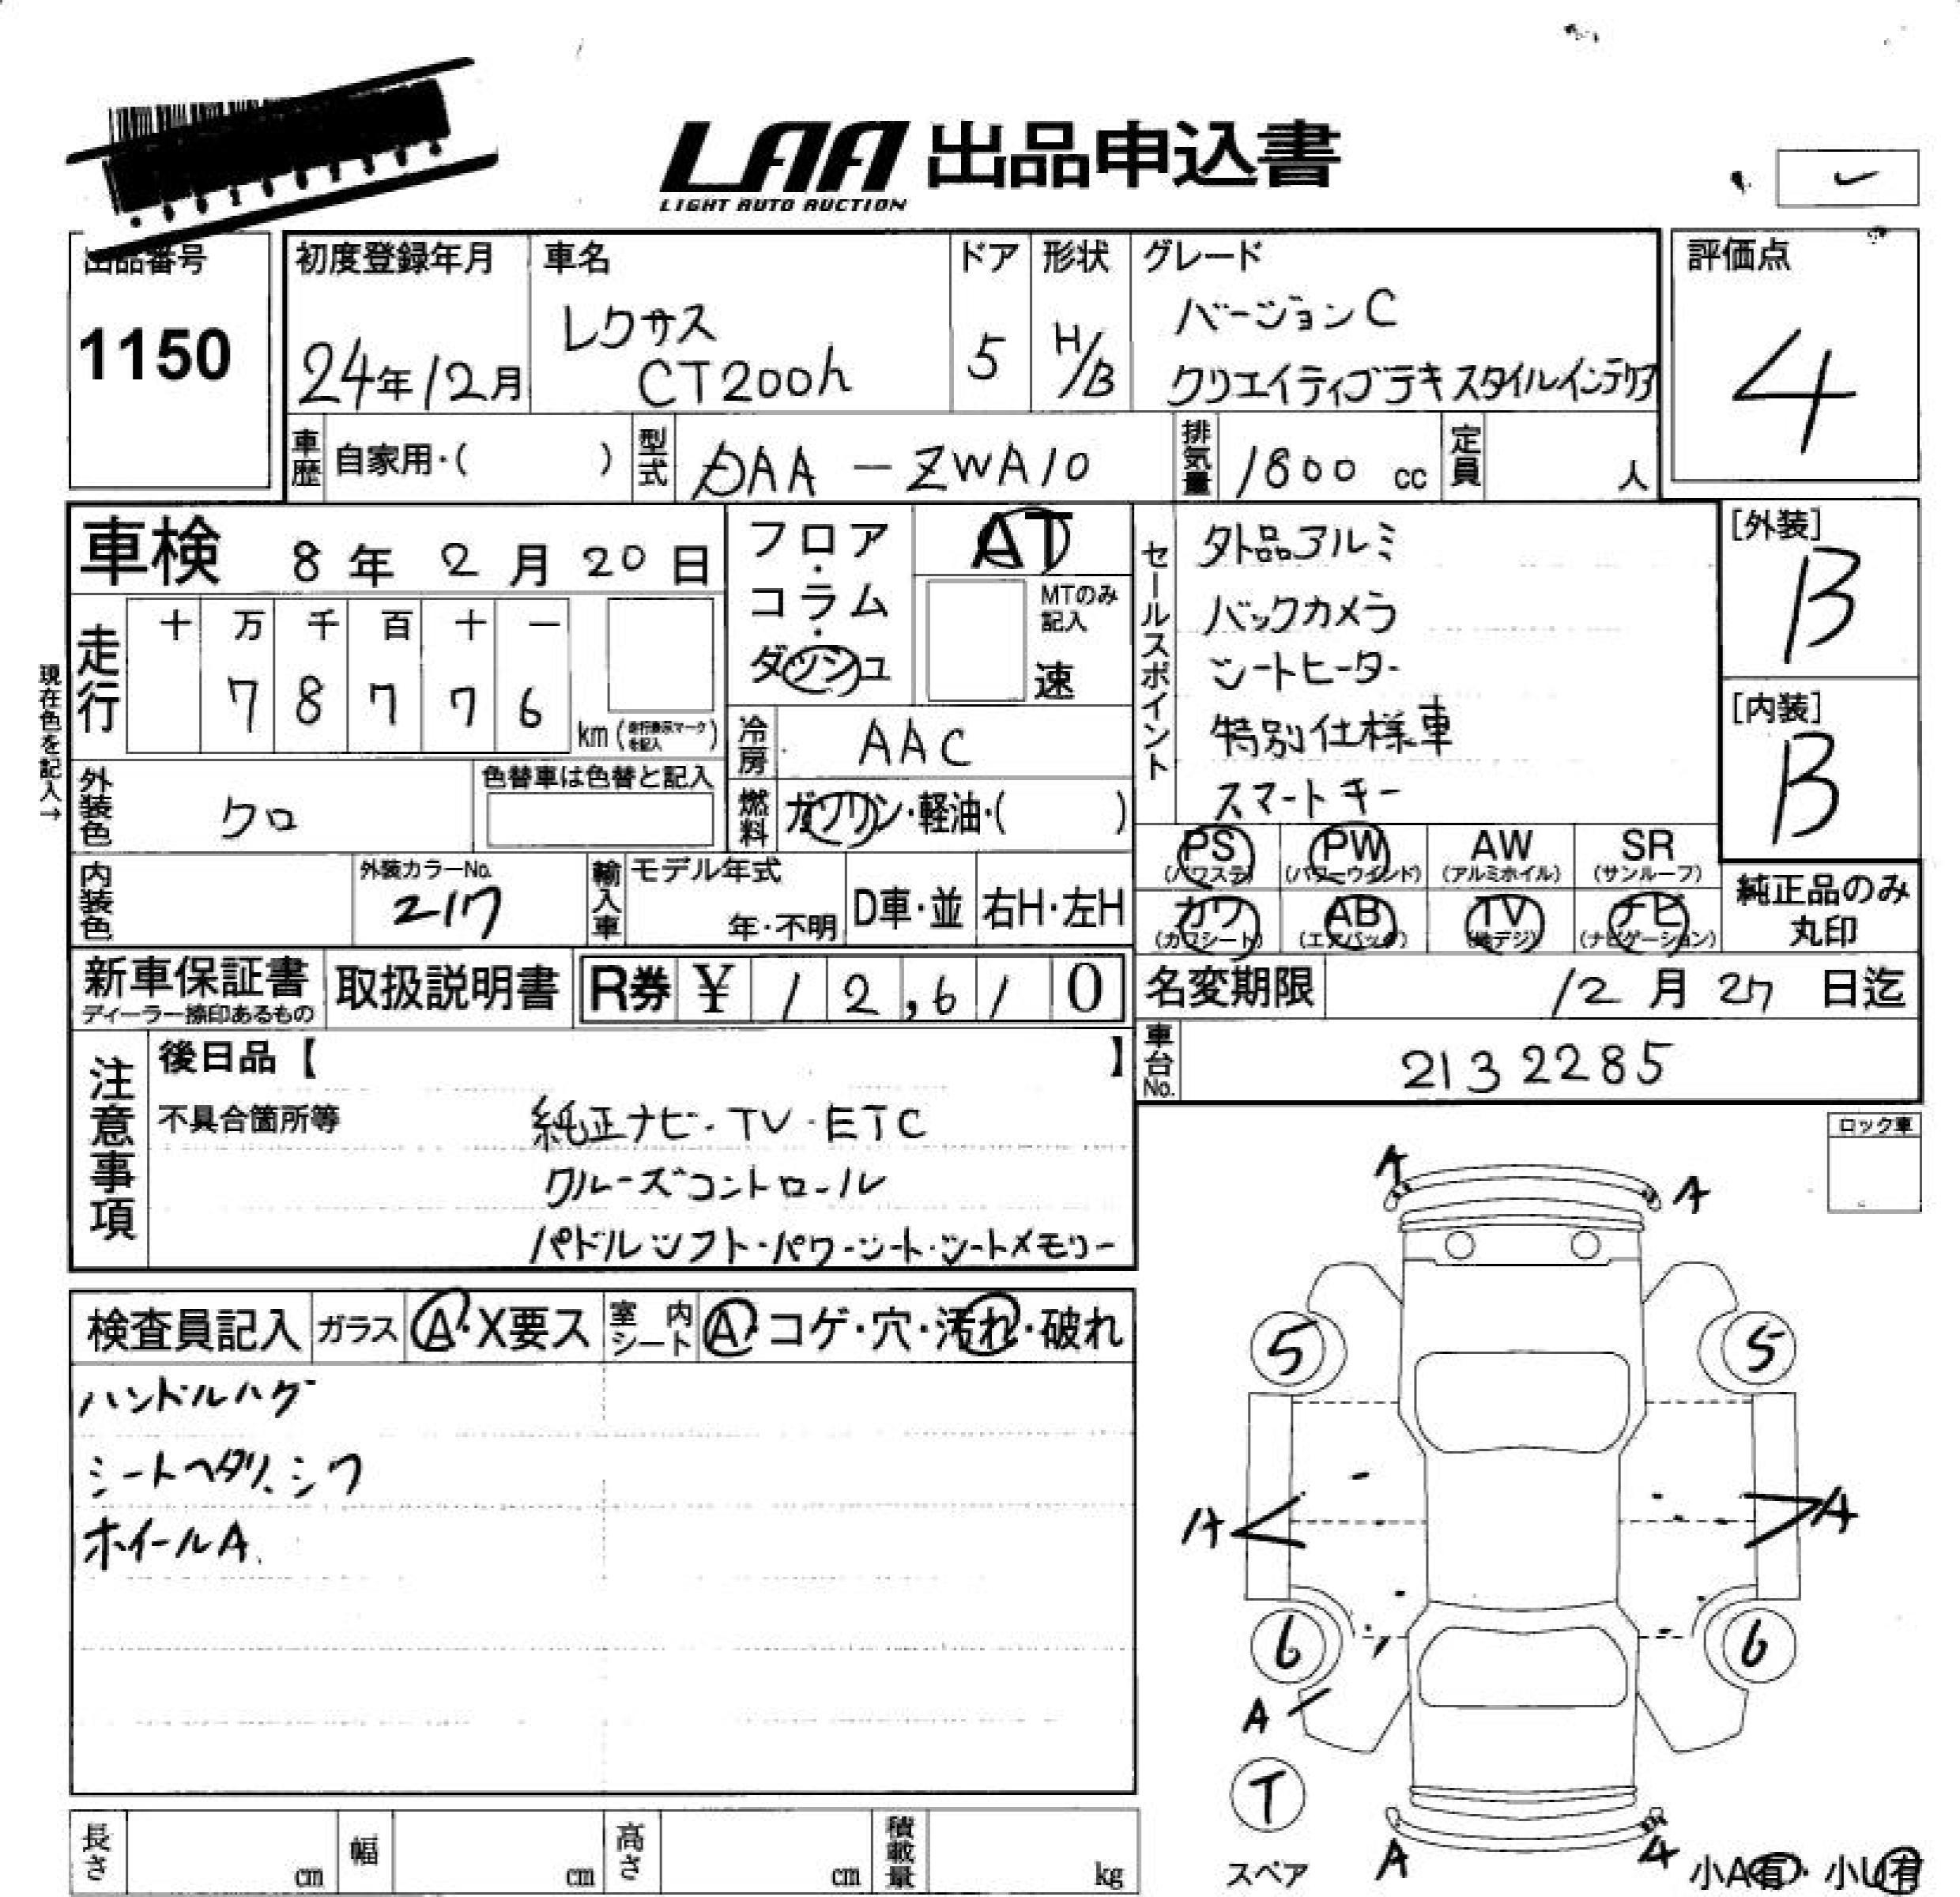 LAA 出品申込書
LIGHT AUTO AUCTION
出品番号
1150
初度登録年月
24年12月
車名
レクサス
CT200h
ドア
5
形状
H/B
グレード
バージョンC
クリエイティブテキスタイルインテリア
評価点
4
車歴 自家用・( )
型式 DAA-ZWA10
排気量 1800 cc
定員 人
車検 8年2月20日
現在色を記入→
走行 十 万 千 百 十 一
7 8 7 7 6
km(走行表示マークを記入)
フロア・コラム・ダッシュ
AT
MTのみ記入
速
冷房 AAC
燃料 ガソリン・軽油・( )
外装色 クロ
色替車は色替と記入
内装色
外装カラーNo.
217
輸入車 モデル年式
年・不明
D車・並
右H・左H
セールスポイント
外品アルミ
バックカメラ
シートヒーター
特別仕様車
スマートキー
[外装]
B
[内装]
B
PS (パワステ)
PW (パワーウインド)
AW (アルミホイル)
SR (サンルーフ)
カワ (カワシート)
AB (エアバッグ)
TV (地デジ)
ナビ (ナビゲーション)
純正品のみ
丸印
新車保証書
ディーラー捺印あるもの
取扱説明書
R券 ¥ 12,610
名変期限 12月27日迄
車台No. 2132285
注意事項
後日品【 】
不具合箇所等
純正ナビ・TV・ETC
クルーズコントロール
パドルシフト・パワーシート・シートメモリー
ロック車
検査員記入
ガラス A・X要ス
室内シート A・コゲ・穴・汚れ・破れ
ハンドルハゲ
シートヘタリ、シワ
ホイールA
A
A
5
5
A
A
6
6
A
T
スペア
A
A
小A有・小U有
長さ cm
幅 cm
高さ cm
積載量 kg